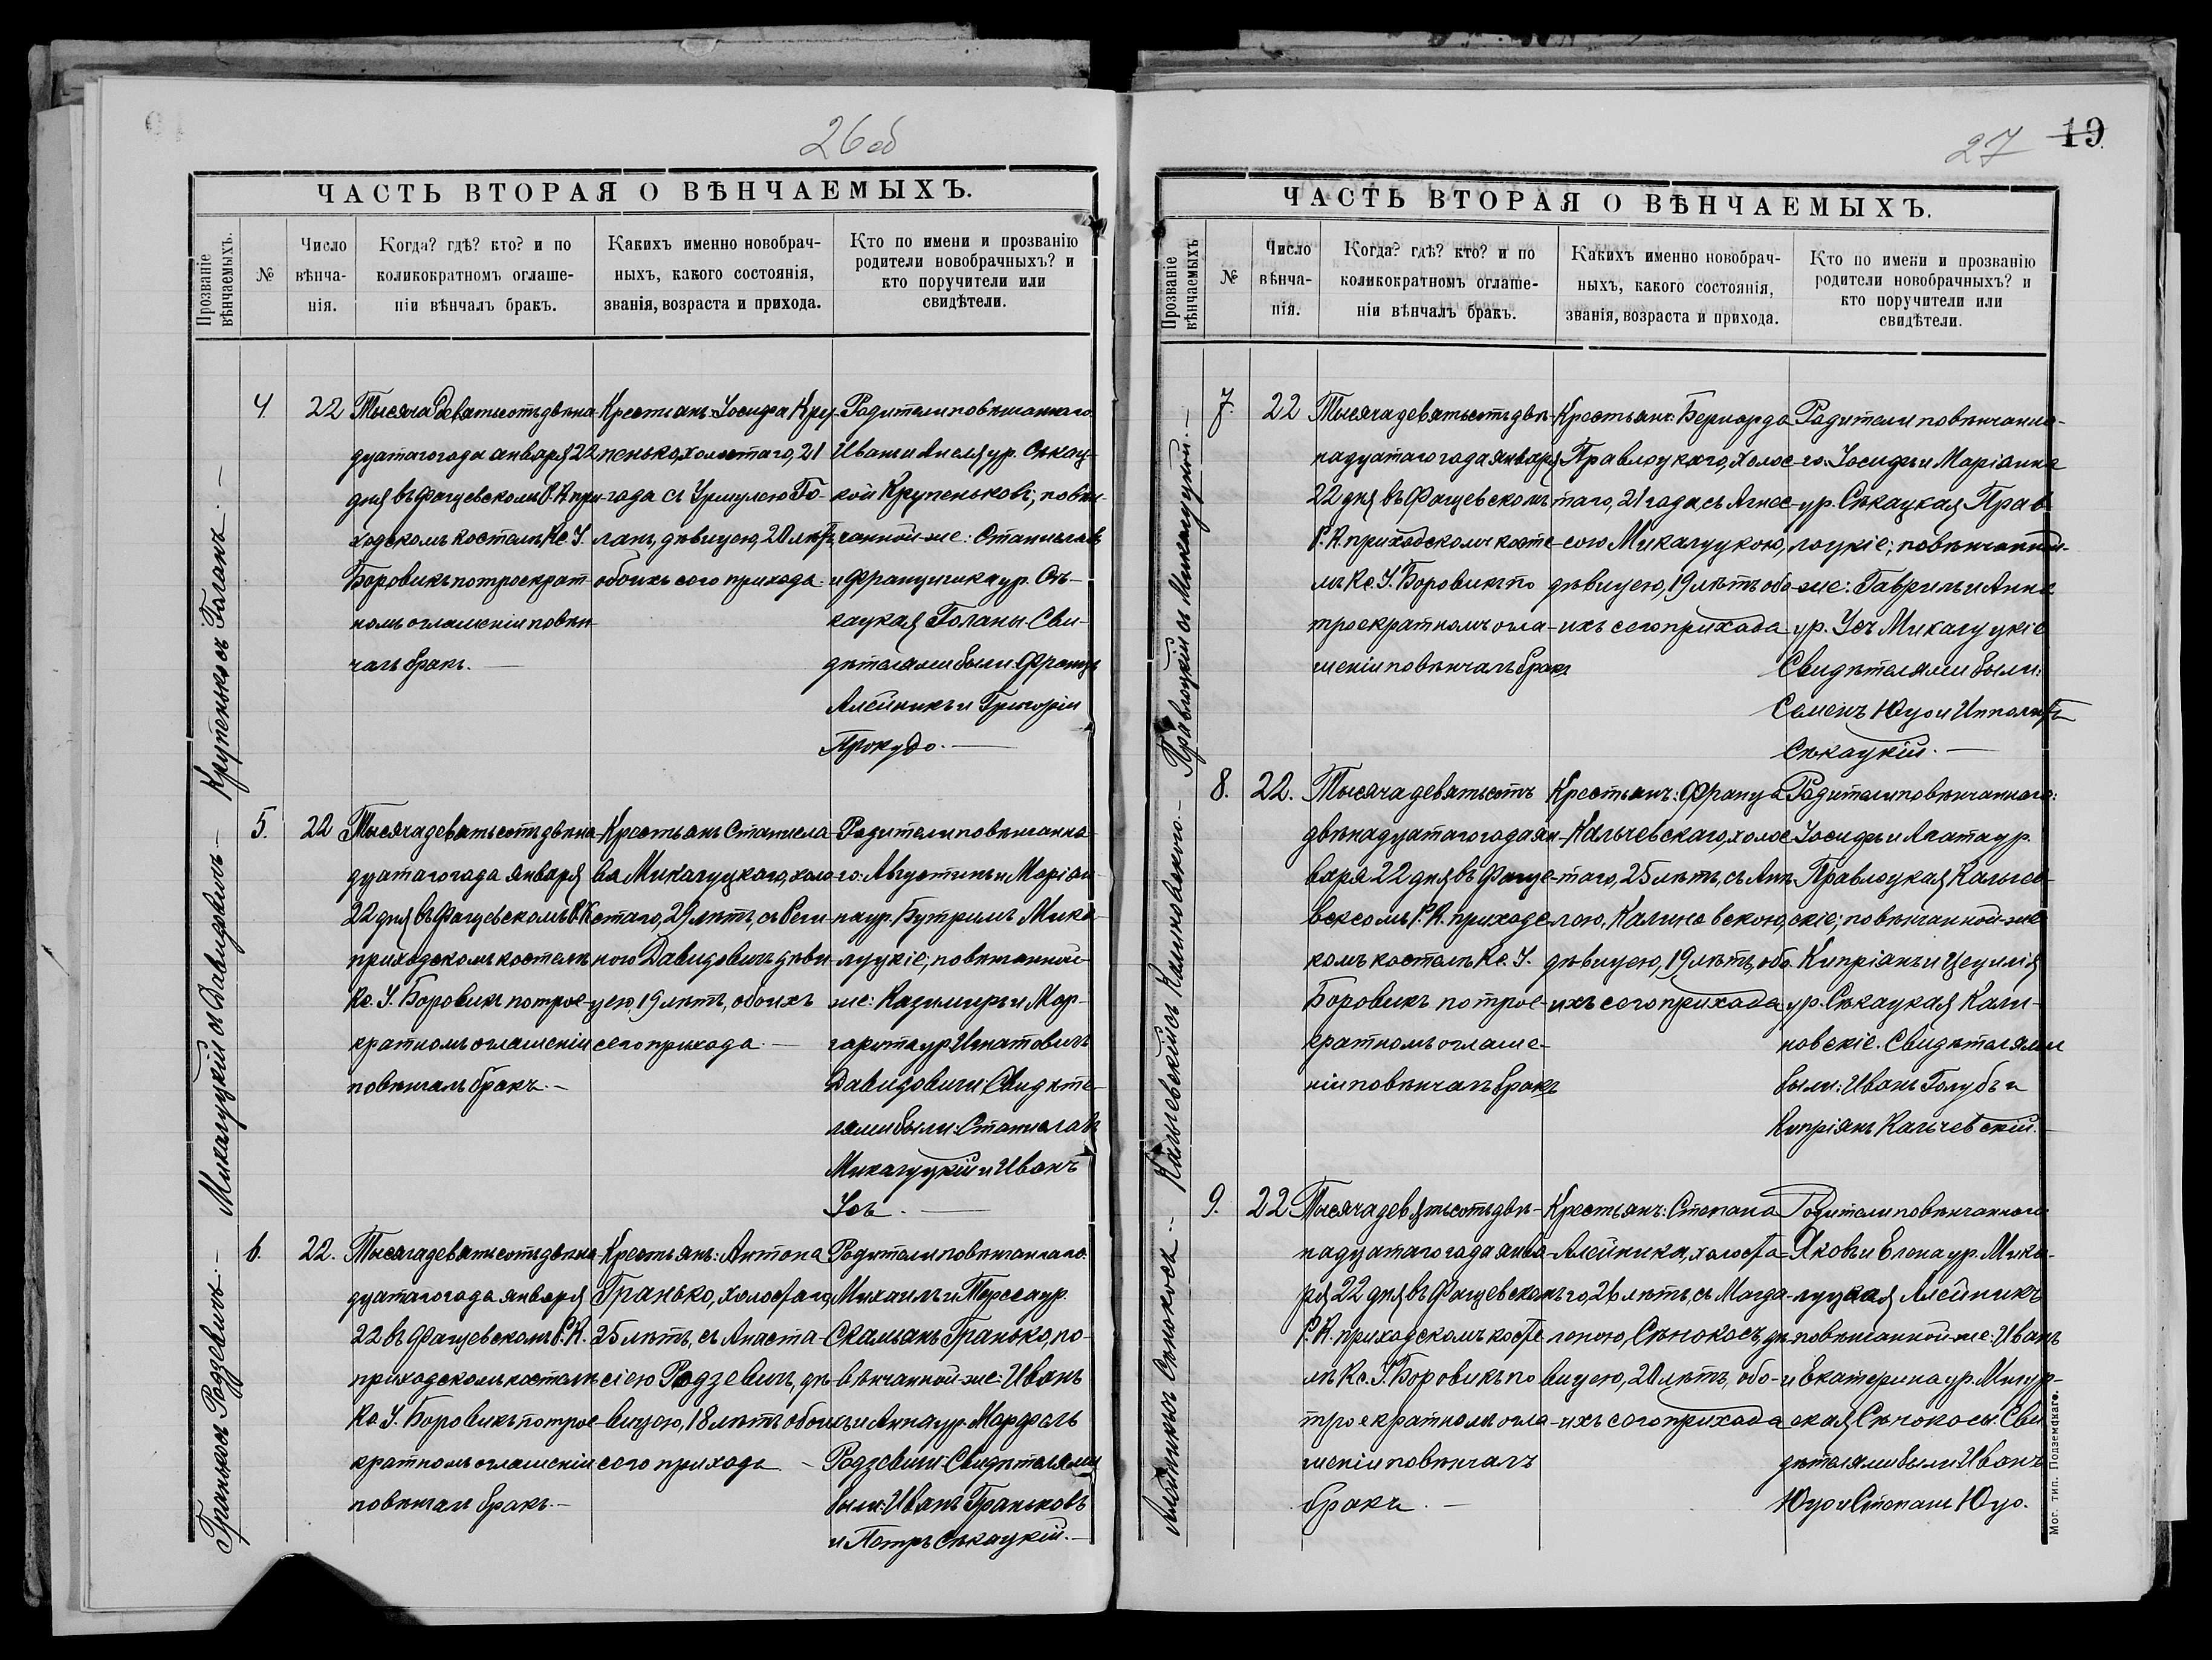 26 об
ЧАСТЬ ВТОРАЯ О ВѢНЧАЕМЫХЪ.
Прозваніе вѣнчаемыхъ.
№
Число вѣнча-нія.
Когда? гдѣ? кто? и по
коликократномъ оглаше-
ніи вѣнчалъ бракъ.
Какихъ именно новобрач-
ныхъ, какого состоянія,
званія, возраста и прихода.
Кто по имени и прозванію
родители новобрачныхъ? и
кто поручители или
свидѣтели.
Крупенько съ Голанъ. —
4.
22
Тысяча девятьсотъ двѣна-
дцатаго года января 22
дня въ Фащевскомъ Р. К. при-
ходскомъ костелѣ Кс. І.
Боровикъ по троекрат-
номъ оглашеніи повѣн-
чалъ бракъ. —
Крестьянъ: Іосифа Кру-
пенько, холостаго, 21
года съ Уршулею Го-
ланъ, дѣвицею, 20 лѣтъ,
обоихъ сего прихода.
Родители повѣнчаннаго
Иванъ и Анеля ур. Сѣкац-
кой Крупеньковъ; повѣн-
чанной-же: Станиславъ
и Францишка ур. Сѣ-
кацкая Голаны. Сви-
дѣтелями были: Францъ
Алейникъ и Григорій
Прокудо. —
Микалуцкій съ Давидовичъ —
5.
22
Тысяча девятьсотъ двѣна-
дцатаго года января
22 дня въ Фащевскомъ Р. К.
приходскомъ костелѣ
Кс. І. Боровикъ по трое-
кратномъ оглашеніи
повѣнчалъ бракъ. —
Крестьянъ Станисла-
ва Микалуцкаго, холо-
стаго, 29 лѣтъ, съ Реги-
ною Давидовичъ дѣви-
цею, 19 лѣтъ, обоихъ
сего прихода. —
Родители повѣнчанна-
го: Августинъ и Маріан-
на ур. Бутримъ Мика-
луцкіе; повѣнчанной-
же: Казимиръ и Мар-
гарита ур. Игнатовичъ
Давидовичи. Свидѣте-
лями были: Станиславъ
Микалуцкій и Иванъ
Усъ. —
Гранько съ Родзевичъ. —
6.
22.
Тысяча девятьсотъ двѣна-
дцатаго года января
22 въ Фащевскомъ Р. К.
приходскомъ костелѣ
Кс. І. Боровикъ по трое-
кратномъ оглашеніи
повѣнчалъ бракъ. —
Крестьянъ: Антона
Гранько, холостаго,
25 лѣтъ, съ Анаста-
сіею Родзевичъ, дѣ-
вицею, 18 лѣтъ обоихъ
сего прихода. —
Родители повѣнчаннаго:
Михаилъ и Тереса ур.
Скальянъ Гранько, по-
вѣнчанной-же: Иванъ
и Анна ур. Марфель
Родзевичи. Свидѣтелями
были: Иванъ Граньковъ
и Петръ Сѣкацкій. —
27
19
ЧАСТЬ ВТОРАЯ О ВѢНЧАЕМЫХЪ.
Прозваніе вѣнчаемыхъ
№
Число вѣнча-нія.
Когда? гдѣ? кто? и по
коликократномъ оглаше-
ніи вѣнчалъ бракъ.
Какихъ именно новобрач-
ныхъ, какого состоянія,
званія, возраста и прихода.
Кто по имени и прозванію
родители новобрачныхъ? и
кто поручители или
свидѣтели.
Правлоцкій съ Микалуцкой. —
7.
22
Тысяча девятьсотъ двѣ-
надцатаго года января
22 дня въ Фащевскомъ
Р. К. приходскомъ косте-
лѣ Кс. І. Боровикъ по
троекратномъ огла-
шеніи повѣнчалъ бракъ
Крестьянъ: Бернарда
Правлоцкаго, холос-
таго, 21 года, съ Агнес-
сою Микалуцкою,
дѣвицею, 19 лѣтъ обо-
ихъ сего прихода
Родители повѣнчанна-
го: Іосифъ и Маріанна
ур. Сѣкацкая Прав-
лоцкіе; повѣнчанной-
же: Гаврилъ и Анна
ур. Усъ Микалуцкіе
Свидѣтелями были:
Семенъ Юцо и Ипполитъ
Сѣкацкій. —
Кальчевскій съ Калиновскою. —
8.
22.
Тысяча девятьсотъ
двѣнадцатаго года ян-
варя 22 дня въ Фаще-
вскомъ Р. К. приходс-
комъ костелѣ Кс. І.
Боровикъ по трое-
кратномъ оглаше-
ніи повѣнчалъ бракъ
Крестьянъ: Франца
Кальчевскаго, холос-
таго, 25 лѣтъ, съ Анѣ-
лею, Калиновскою,
дѣвицею, 19 лѣтъ, обо-
ихъ сего прихода
Родители повѣнчаннаго:
Іосифъ и Агата ур.
Правлоцкая Кальчев-
скіе; повѣнчанной-же
Кипріянъ и Цецилія
ур. Сѣкацкая Кали-
новскіе. Свидѣтелями
были: Иванъ Голубъ и
Кипріянъ Кальчевскій.
Алейникъ съ Сѣнокосъ —
9.
22
Тысяча девятьсотъ двѣ-
надцатаго года янва-
ря 22 дня въ Фащевскомъ
Р. К. приходскомъ косте-
лѣ Кс. І. Боровикъ по
троекратномъ огла-
шеніи повѣнчалъ
бракъ. —
Крестьянъ: Степана
Алейника, холоста-
го, 26 лѣтъ, съ Магда-
леною, Сѣнокосъ, дѣ-
вицею, 20 лѣтъ, обо-
ихъ сего прихода
Родители повѣнчаннаго:
Яковъ и Елена ур. Мика-
луцкая Алейникъ
повѣнчанной-же: Иванъ
и Екатерина ур.
ская Сѣнокосы. Сви-
дѣтелями были Иванъ
Юцо и Степанъ Юцо.
Мог. тип. Подземскаго.